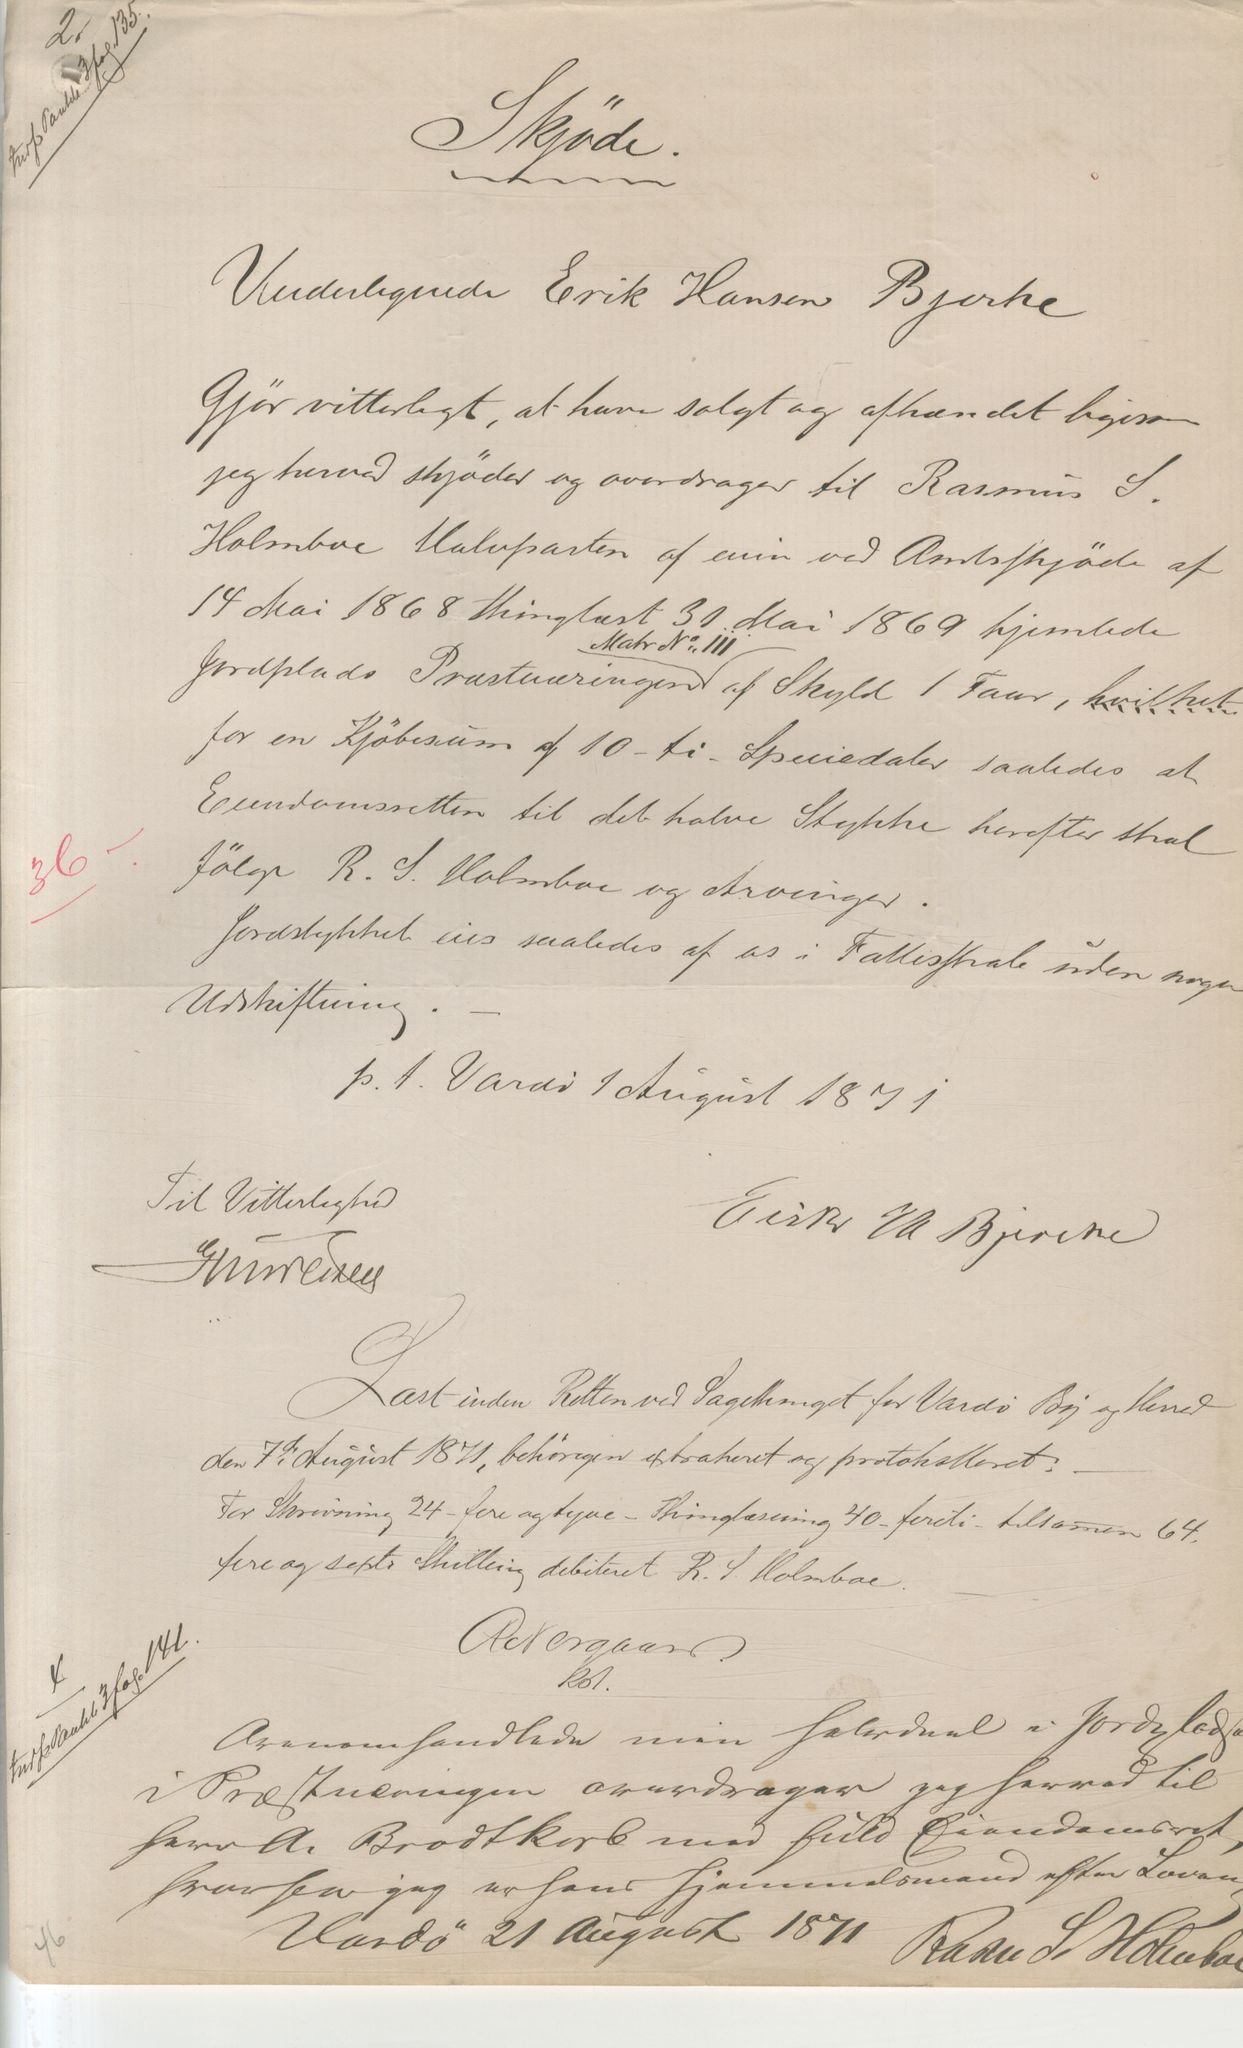 2.
indf. Pantb. 3 fog. 135.
Skjöde.
Underlegnede Erik Hansen Bjerke
Gjör vitterlegt, at have solgt og afhændet ligesom
jeg herved skjöder og overdrager til Rasmus S.
Holmboe Halvparten af min ved Amtsskjöde af
14 Mai 1868 thinglæst 31 Mai 1869 hjemlede
Matr No. III
Jordplads Præstnæringen af Skyld 1 Faur, hvilket
for en Kjöbesum af 10 - ti - Speciedaler saaledes at
Eiendomsretten til det halve Stykke herefter skal
fölge R. S. Holmboe og Arvinger.
Jordstykket eies saaledes af os i Fællesskab uden nogen
Udskiftning. —
p. t. Vardö 1 August 1871
36 -
Til Vitterlighed
Eirik HA Bjercke
Læst inden Retten ved Sagethinget for Vardö By og Herred
den 7de August 1871, behörigen extraheret og protokolleret: —
For Skrivning 24 - fire og tyve - Thinglæsning 40 - forti - tilsammen 64.
fire og sexti Skilling debiteret R. S. Holmboe. —
kst.
4
indf. Pantb. 3 fog. 141.
Ovenomhandlede min halvdeel i Jordpladsen
i Præstnæringen overdrager jeg herved til
Herr A. Brodtkorb med fuld Eiendomsret,
hvorfor jeg er hans Hjemmelsmand efter Loven,
Vardö 21 August 1871 Rasm S. Holmboe
46